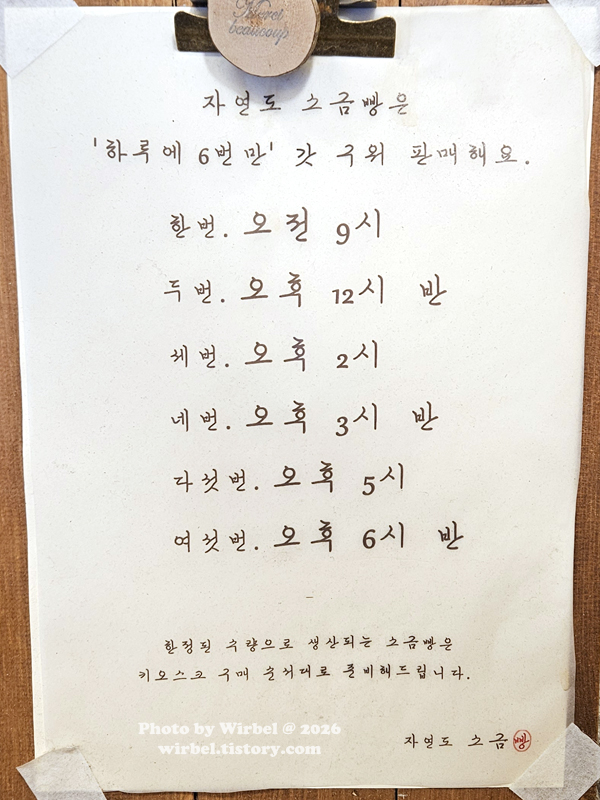 Merci
beaucoup
자연도 소금빵은
'하루에 6번만' 갓 구워 판매해요.
한번. 오전 9시
두번. 오후 12시 반
세번. 오후 2시
네번. 오후 3시 반
다섯번. 오후 5시
여섯번. 오후 6시 반
한정된 수량으로 생산되는 소금빵은
키오스크 구매 순서대로 준비해드립니다.
자연도 소금빵
Photo by Wirbel @ 2026
wirbel.tistory.com